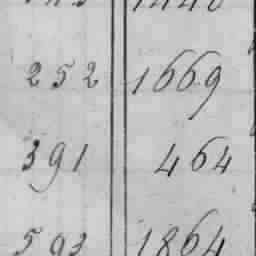 252 1669
391 464
593 1864